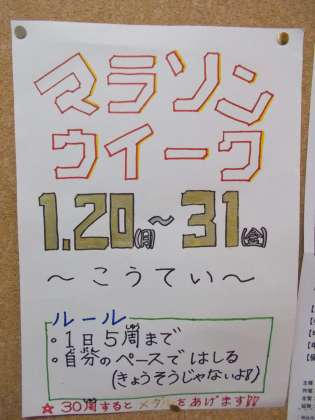 マラソン
ウイーク
1.20(月)~31(金)
~こうてい~
ルール
・1日5周まで
・自分のペースではしる
(きょうそうじゃないよ!!)
☆30周すると メダルをあげます!!